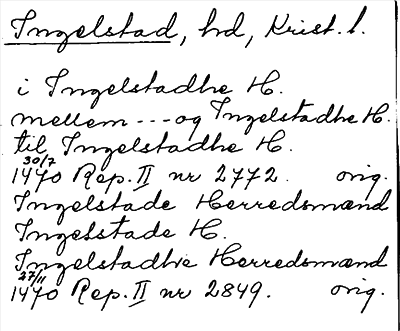 Ingelstad, hd, Krist. l.
i Ingelstadhe H.
mellem --- og Ingelstadhe H.
til Ingelstadhe H.
30/7
1470 Rep. II nr 2772. orig.
Ingelstade Herredsmænd
Ingelstade H.
Ingelstadhe Herredsmænd
27/11
1470 Rep. II nr 2849. orig.